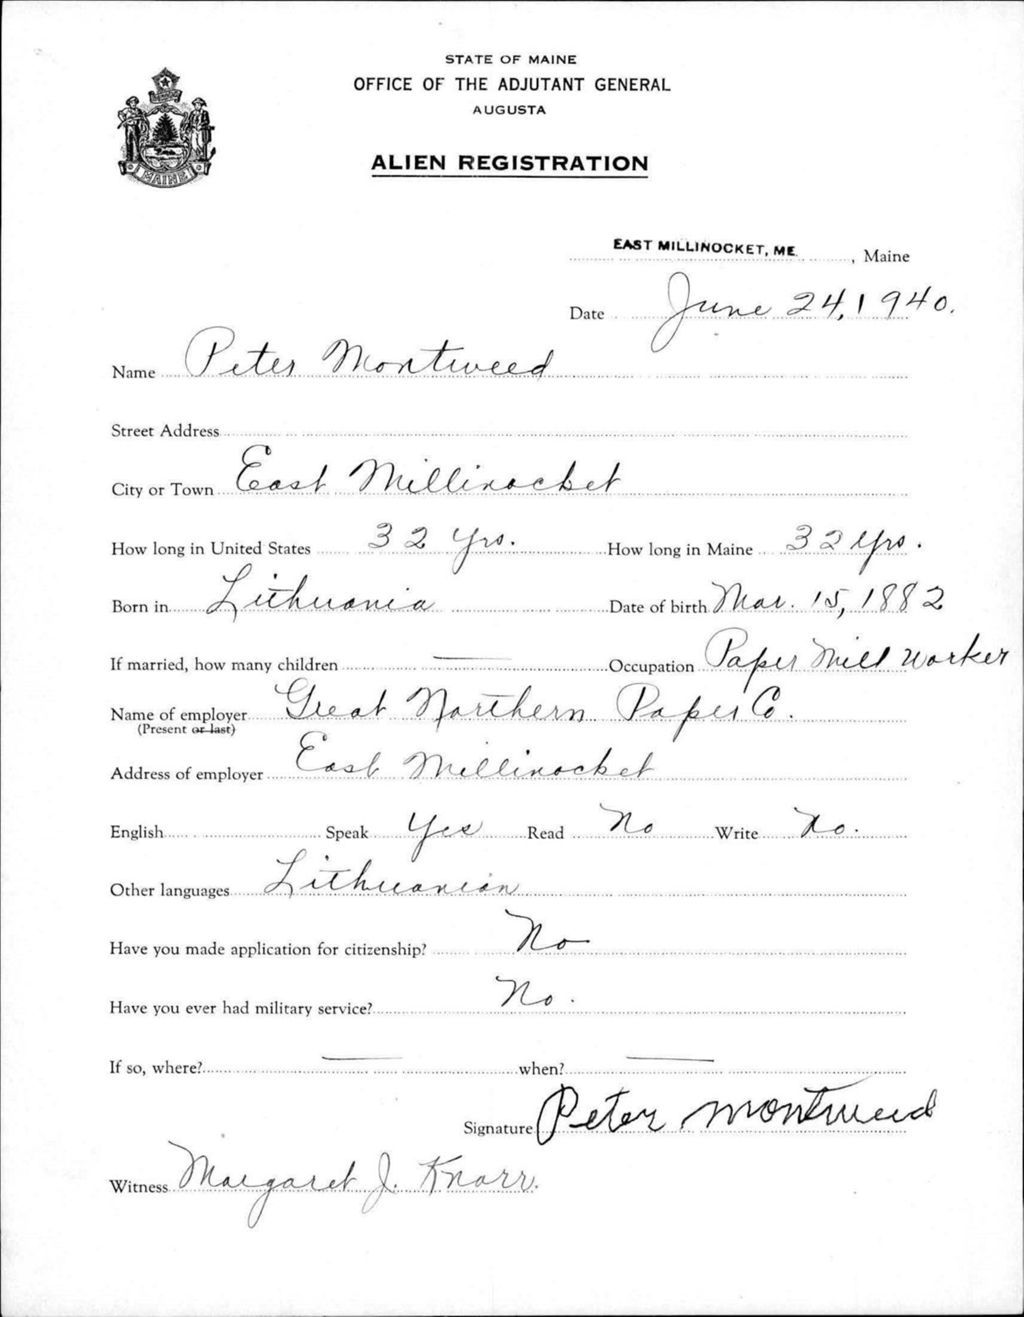 STATE OF MAINE
OFFICE OF THE ADJUTANT GENERAL
AUGUSTA
ALIEN REGISTRATION
MAINE
EAST MILLINOCKET, ME. , Maine
Date June 24, 1940.
Name Peter Montweed
Street Address
City or Town East Millinocket
How long in United States 32 yrs. How long in Maine 32 yrs.
Born in Lithuania Date of birth Mar. 15, 1882
If married, how many children — Occupation Paper Mill Worker
Name of employer Great Northern Paper Co.
(Present or last)
Address of employer East Millinocket
English Speak Yes Read No Write No.
Other languages Lithuanian
Have you made application for citizenship? No
Have you ever had military service? No.
If so, where? — when? —
Signature Peter Montweed
Witness Margaret J. Knarr.